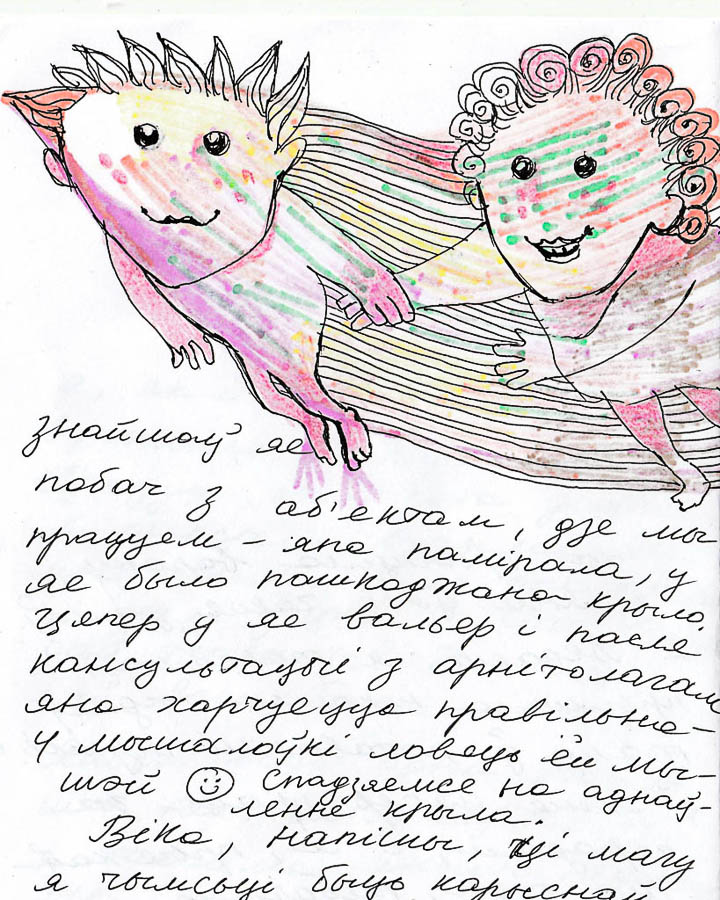 знайшоў яе
побач з аб'ектам, дзе мы
працуем – яна памірала, у
яе было пашкоджана крыло.
Цяпер у яе вальер і пасля
кансультацыі з арнітолагам
яна харчуецца правільна –
у мышалоўкі ловяць ёй мы-
шэй ☺ Спадзяемся на аднаў-
ленне крыла.
Віка, напішы, ці магу
я чымсьці быць карыснай